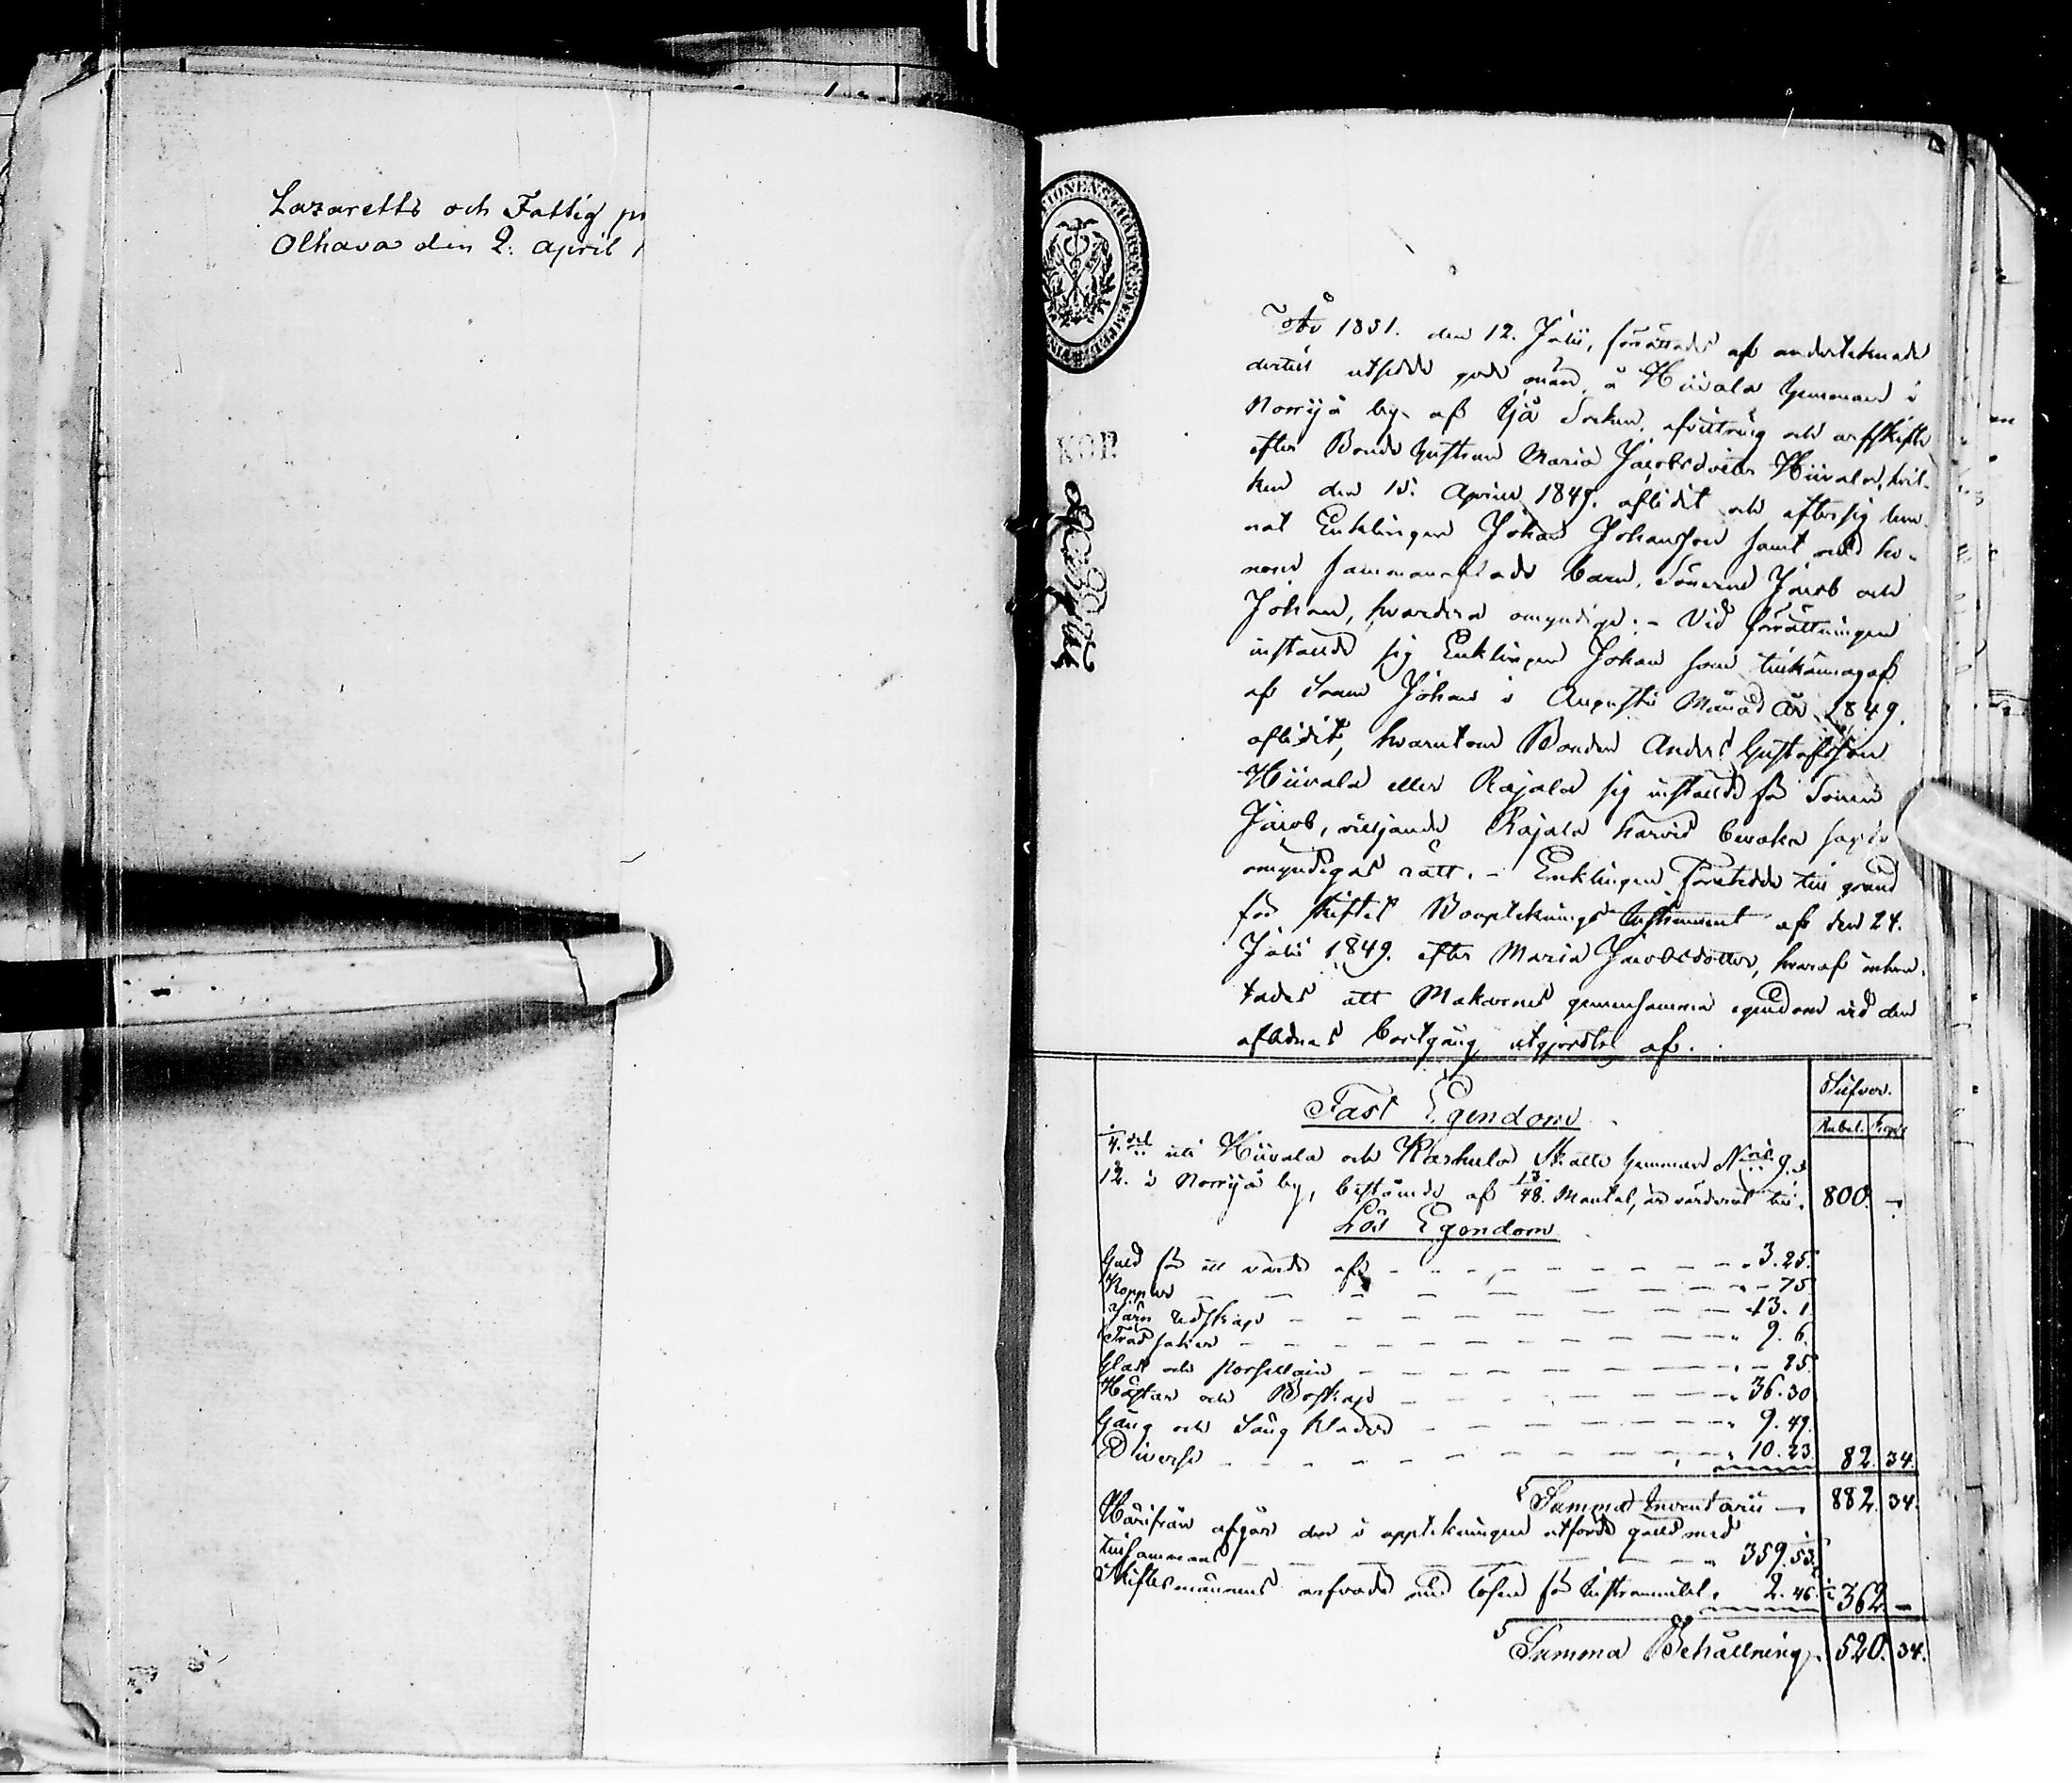 Lazaretts och Fattig pr
Olhava den 2. April 1
KOP.
År 1851. den 12. Julii, förrättades af undertecknade
dertill utsedde gode män, å Hiivala hemman i
Norrijå by af Ijå Socken, afvittring och arfskifte
efter Bonde hustrun Maria Jacobsdotter Hiivala, hvil-
ken den 15. Aprill 1849. aflidit och efter sig lem-
nat Enklingen Johan Johansson samt med ho-
nom sammanaflade barn, Sönerne Jacob och
Johan, hvardera omyndige. - Vid förrättningen
instälde sig Enklingen Johan som tillkännagaf
af Sonen Johan i Augusti Månad År 1849.
aflidit, hvarutom Bonden Anders Gustafsson
Hiivala eller Rajala sig instälde för Sonen
Jacob, Rajala härvid bevaka
omyndigas rätt. - Enklingen företedde till grund
för skiftet Bouptecknings Instrument af den 24.
Julii 1849. efter Maria Jacobsdotter, hvaraf inhem-
tades att Makarnes gemensamma egendom vid den
aflidnas bortgång utgjordes af.
Silfver.
Rubel. Kop.
Fast Egendom
1/4. del uti Hiivala och Karhula Skatte hemman N:ris 9. &
12. i Norrijå by, bestående af 13/48. Mantal, är värderat till. 800. -
Lös Egendom
Guld för ett värde af - 3.25.
Koppar - 75
Järn redskap - 13. 1
Träd saker - 9. 6.
Glas och Porsellain - 25.
Hästar och Boskap - 36.30
Gång och Säng Kläder - 9.49.
Diverse - 10.23. 82. 34.
Summa Inventarii - 882. 34.
Härifrån afgår den i uppteckningen utförde gäld med
tillsammans - 359.53 1/2
Skiftesmännens arfvode med lösen för Instrumentet. 2.46 1/2 362. -
Summa Behållning 520. 34.